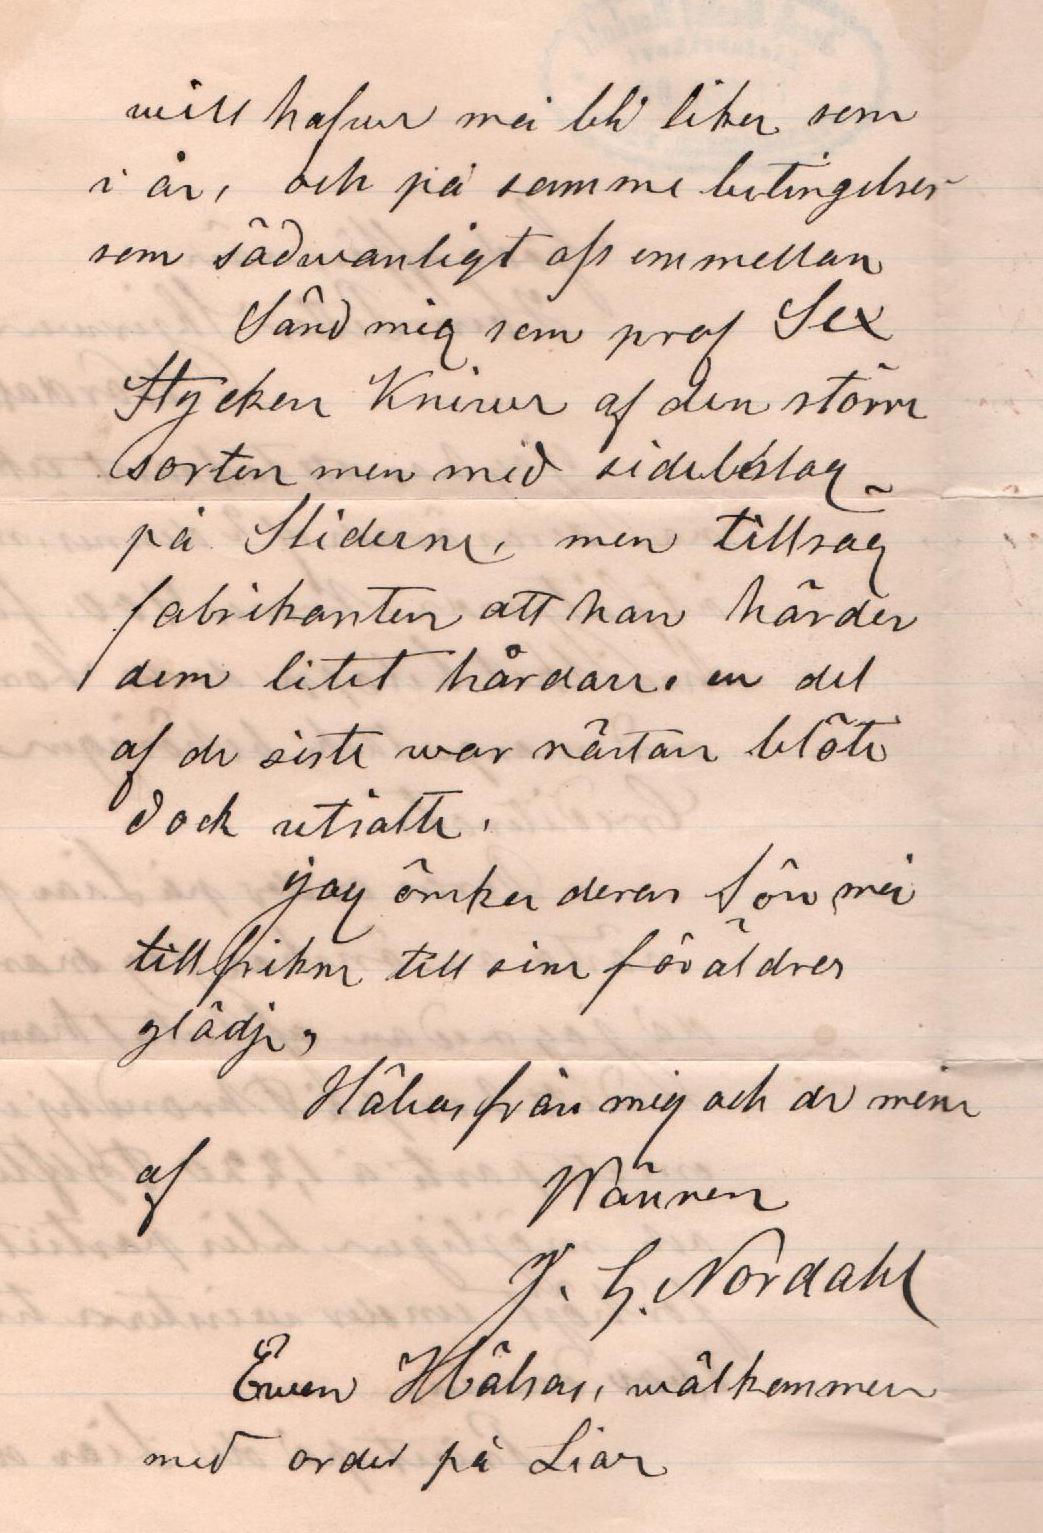 will hafwer mei bli liker som
i år, och på samme betingelser
som sädwanligt oss emmellan
Sänd mig som prof Sex
Stycken Kniver af den störe
sorten men med sidebeslag
på Sliderne, men tillsäg
fabrikanten att han härder
dem litet hårdare. en del
af de siste war nästan blöte
dock utsatte.
jag önsker deras Sön mei
tillfrikne till sine föräldres
glädje,
Hälsas från mig och de mine
af Wännen
J. G. Nordahl
Ewen Hälsas, wälkommen
med order på Liar